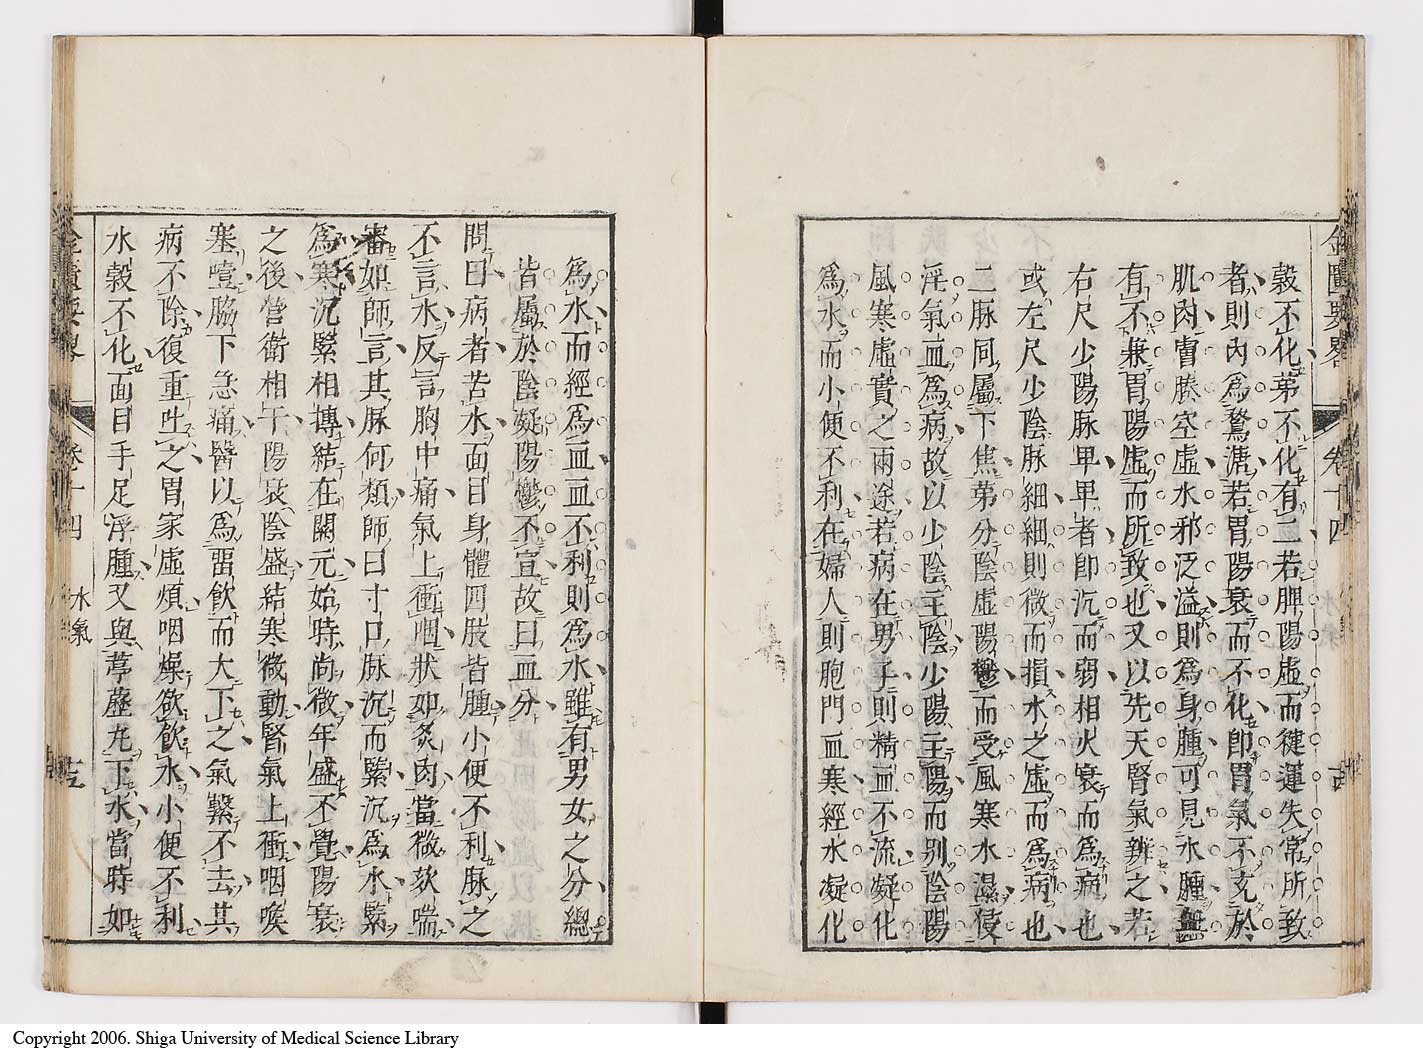 金匱要畧 卷十四
穀不化第不化有二若脾陽虛而健運失常所致
者則內爲鶩溏若胃陽衰而不化卽胃氣不充於
肌肉膚腠空虛水邪泛溢則爲身腫可見水腫
有不兼胃陽虛而所致也又以先天腎氣辨之若
右尺少陽脉卑卑者卽沉而弱相火衰而爲病也
或左尺少陰脉細細則微而損水之虛而爲病也
二脉同屬下焦第分陰虛陽鬱而受風寒水濕侵
淫氣血爲病故以少陰主陰少陽主陽而别陰陽
風寒虛實之兩途若病在男子則精血不流凝化
爲水而小便不利在婦人則胞門血寒經水凝化
爲水而經爲血血不利則爲水雖有男女之分總
皆屬於陰凝陽鬱不宣故曰血分
問曰病者苦水面目身體四肢皆腫小便不利脉之
不言水反言胸中痛氣上衝咽狀如炙肉當微欬喘
審如師言其脉何類師曰寸口脉沉而緊沉爲水緊
爲寒沉緊相搏結在關元始時尚微年盛不覺陽衰
之後營衛相干陽衰陰盛結寒微動腎氣上衝咽喉
塞噎脇下急痛醫以爲畱飲而大下之氣繫不去其
病不除復重吐之胃家虛煩咽燥欲飲水小便不利
水穀不化面目手足浮腫又與葶藶丸下水當時如
金匱要畧 卷十四 水氣
Copyright 2006. Shiga University of Medical Science Library